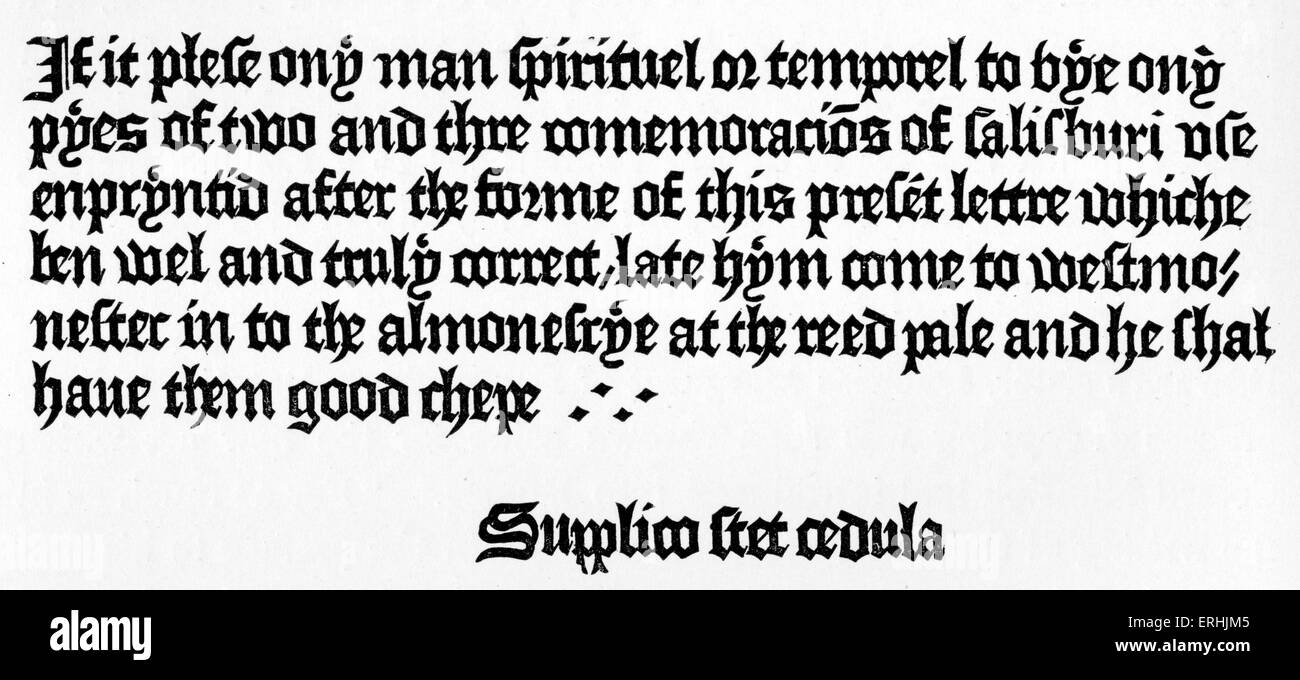 If it plese ony man spirituel or temporel to bye ony
pyes of two and thre comemoraciōs of salisburi vse
enpryntid after the forme of this presēt lettre whiche
ben wel and truly correct, late hym come to westmo⸗
nester in to the almonesrye at the reed pale and he shal
haue them good chepe ∴
Supplico stet cedula
alamy
Image ID: ERHJM5
www.alamy.com